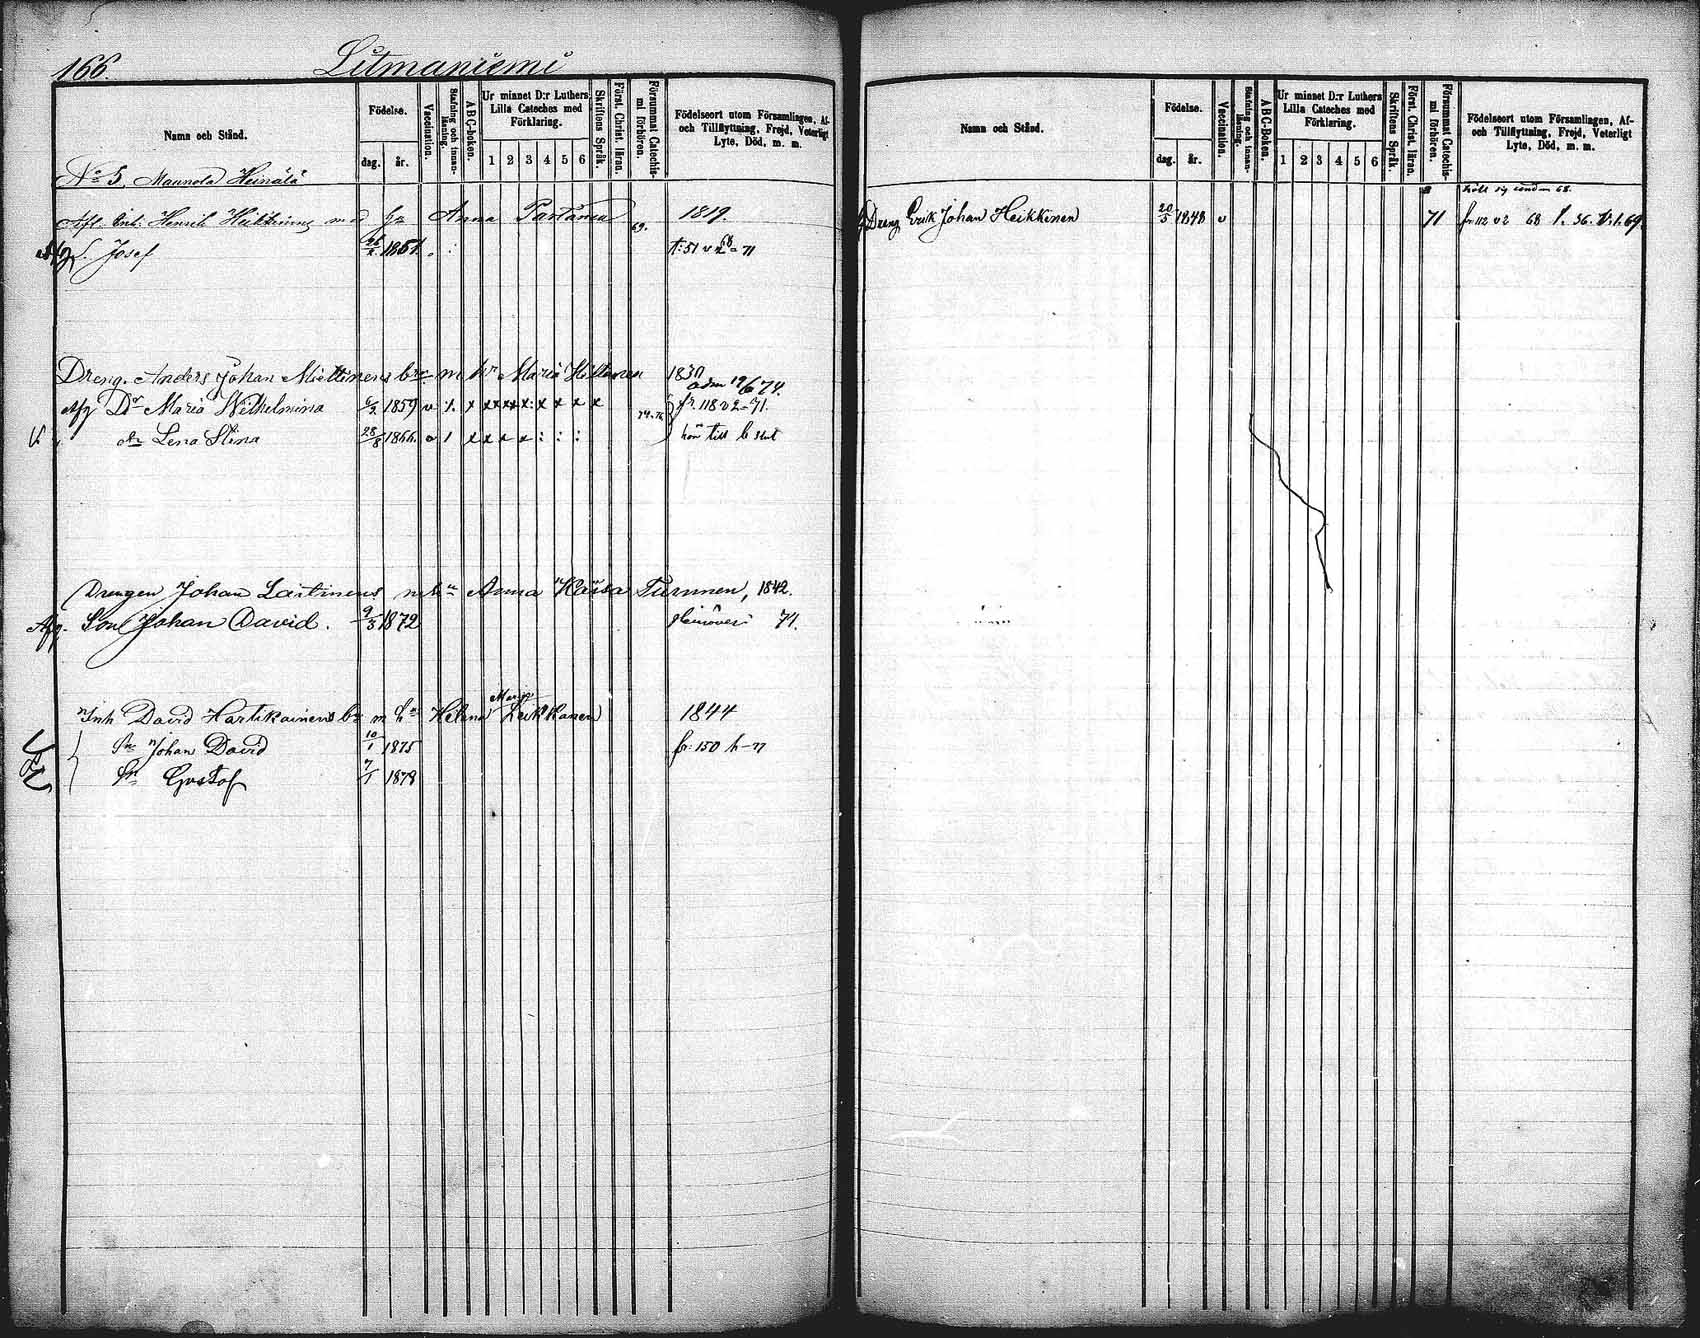 166.
Litmaniemi
Namn och Stånd.
Födelse.
dag.
år.
Vaccination.
Stafning och innanläsning.
ABC-boken.
Ur minnet D:r Luthers Lilla Cateches med Förklaring.
1 2 3 4 5 6
Skriftens Språk.
Först. Christ. läran.
Försummat Catechismi förhören.
Födelseort utom Församlingen, Af- och Tillflyttning, Frejd, Veterligt Lyte, Död, m. m.
No 5, Mannola Heinälä
Afl. Inh: Henrik Heikkinens Anna Partanen 69. 1819.
Josef 1861. t: 51 v 2 68-71
Dreng. Anders Johan Miettinens m hr Maria Hiltunen 1830
Maria Wilhelmina 1859 v x x x x fr. 118 v 2-71.
Lena Stina 28/8 1866. till
Drengen Johan Lartinens Anna Kaisa Turunen, 1842.
Son Johan David. 9/3 1872 74.
Marg
Inh David Hartikainens m Helena 1844
Johan David 10/1 1875 fr: 150
Gustof 7/1 1878
Namn och Stånd.
Födelse.
dag.
år.
Vaccination.
Stafning och innanläsning.
ABC-Boken.
Ur minnet D:r Luthers Lilla Cateches med Förklaring.
1 2 3 4 5 6
Skriftens Språk.
Först. Christ. läran.
Försummat Catechismi förhören.
Födelseort utom Församlingen, Af- och Tillflyttning, Frejd, Veterligt Lyte, Död, m. m.
68.
Dreng Erik Johan Heikkinen 20/5 1848 v 71 fr 112 v 2 68 f. 36. 69.